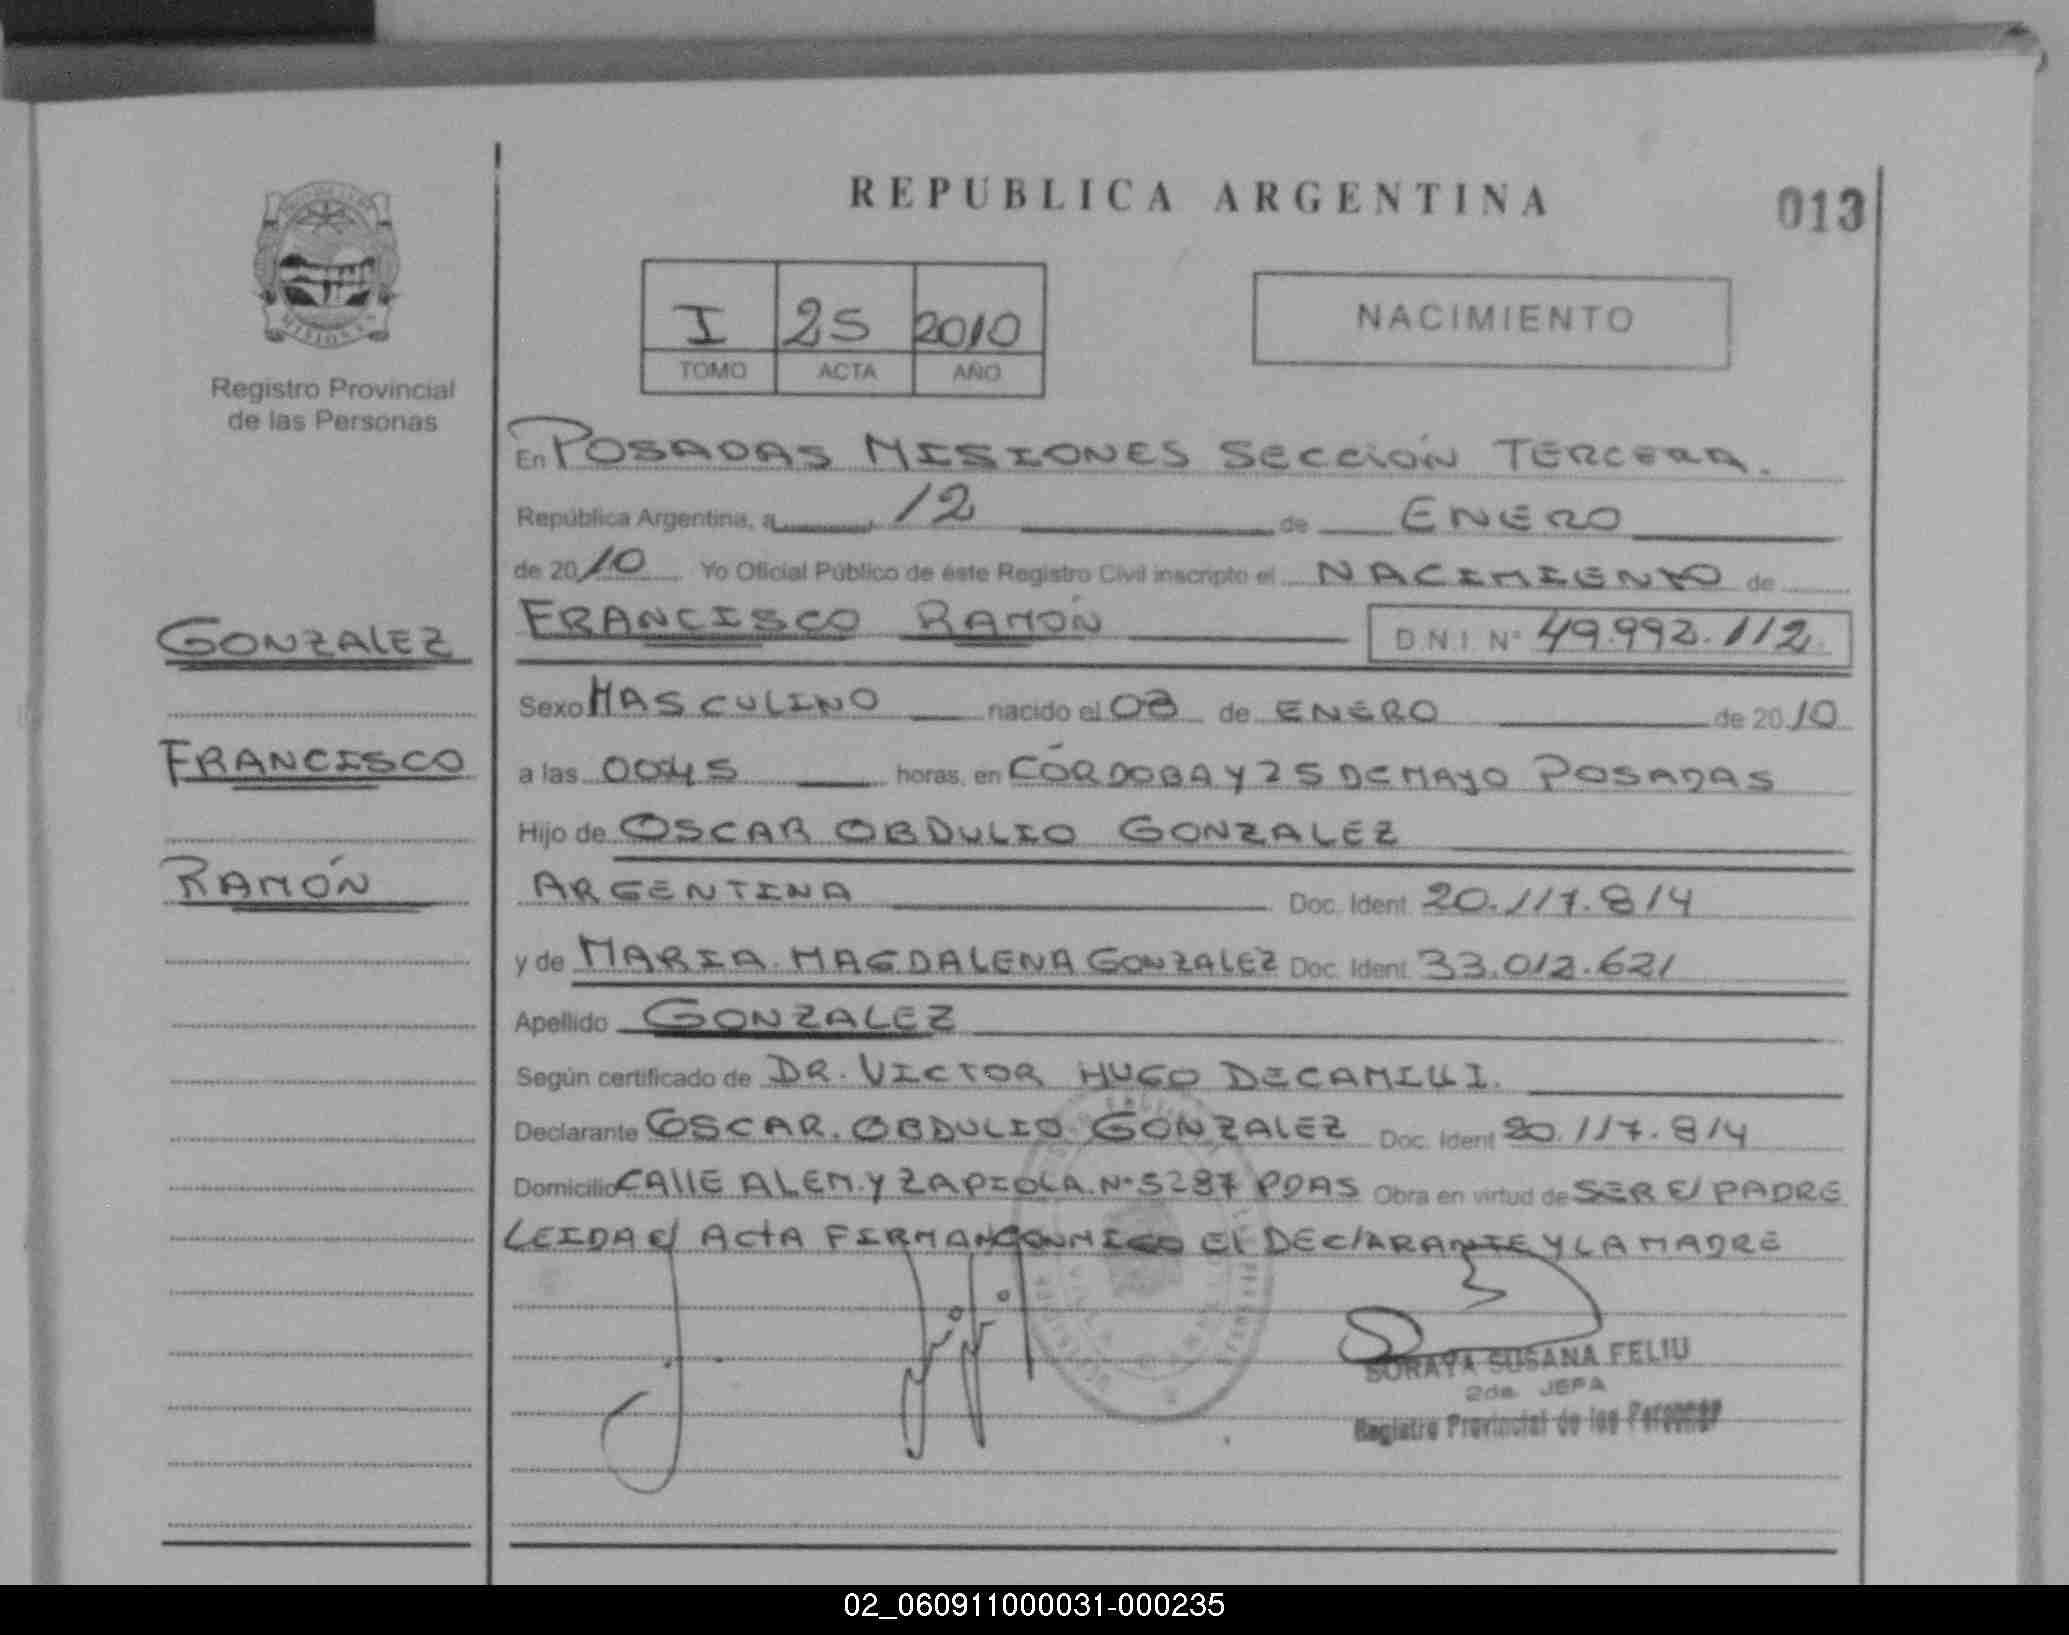 REPUBLICA ARGENTINA
013
MISIONES
Registro Provincial
de las Personas
I 25 2010
TOMO ACTA AÑO
NACIMIENTO
En POSADAS MISIONES SECCIÓN TERCERA.
República Argentina, a 12 de ENERO
de 2010 Yo Oficial Público de éste Registro Civil inscripto el NACIMIENTO de
FRANCISCO RAMÓN D.N.I. Nº 49.992.112.
GONZALEZ
FRANCISCO
RAMÓN
Sexo MASCULINO nacido el 08 de ENERO de 2010
a las 0045 horas, en CÓRDOBA Y 25 DE MAYO POSADAS
Hijo de OSCAR OBDULIO GONZALEZ
ARGENTINA Doc. Ident. 20.117.814
y de MARIA MAGDALENA GONZALEZ Doc. Ident. 33.012.621
Apellido GONZALEZ
Según certificado de DR. VICTOR HUGO DECAMILLI.
Declarante OSCAR OBDULIO GONZALEZ Doc. Ident 20.117.814
Domicilio CALLE ALEM Y ZAPIOLA Nº 5287 PDAS Obra en virtud de SER El PADRE
LEIDA El ACTA FIRMAN CONMIGO El DEClARANTE Y LA MADRE
SORAYA SUSANA FELIU
2da. JEFA
Registro Provincial de las Personas
02_060911000031-000235